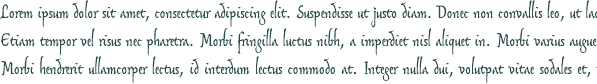 Lorem ipsum dolor sit amet, consectetur adipiscing elit. Suspendisse ut justo diam. Donec non convallis leo, ut
Etiam tempor vel risus nec pharetra. Morbi fringilla luctus nibh, a imperdiet nisl aliquet in. Morbi varius augue
Morbi hendrerit ullamcorper lectus, id interdum lectus commodo at. Integer nulla dui, volutpat vitae sodales et,